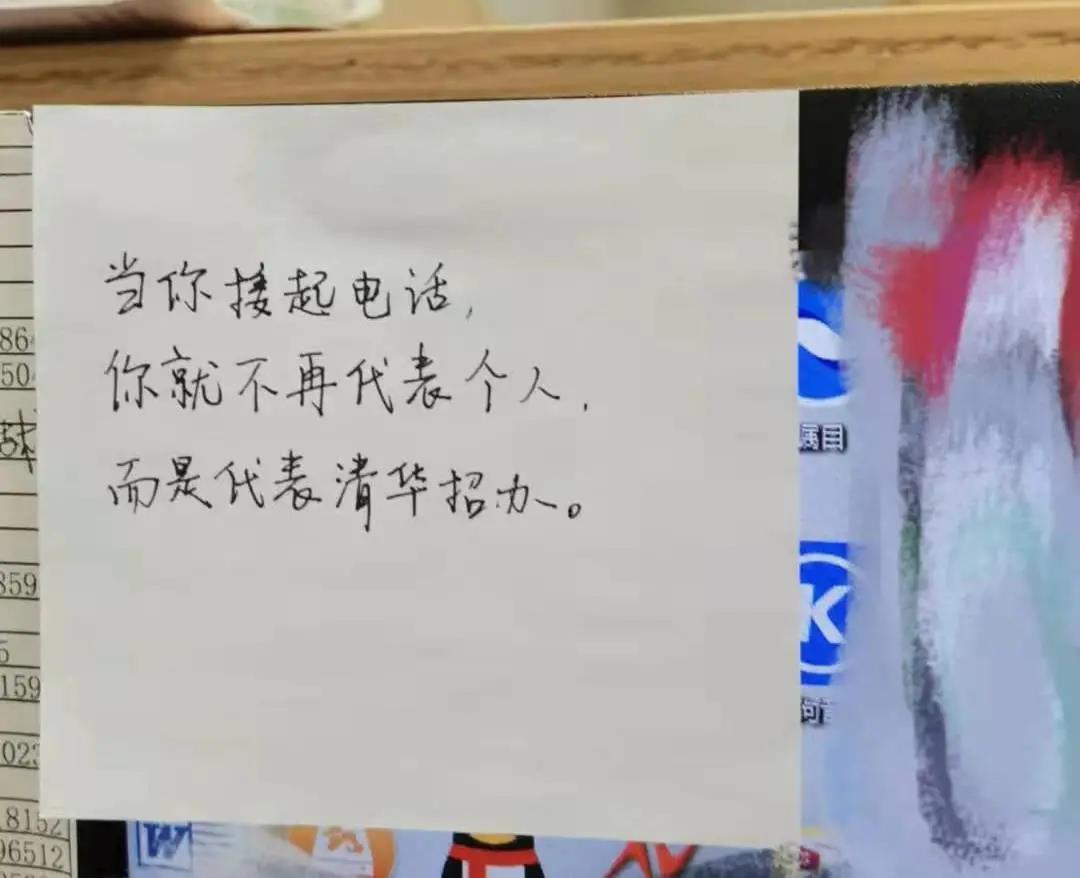 当你接起电话,
你就不再代表个人,
而是代表清华招办。
86
50
859
5
159
023
18152
96512
嘱目
K
W